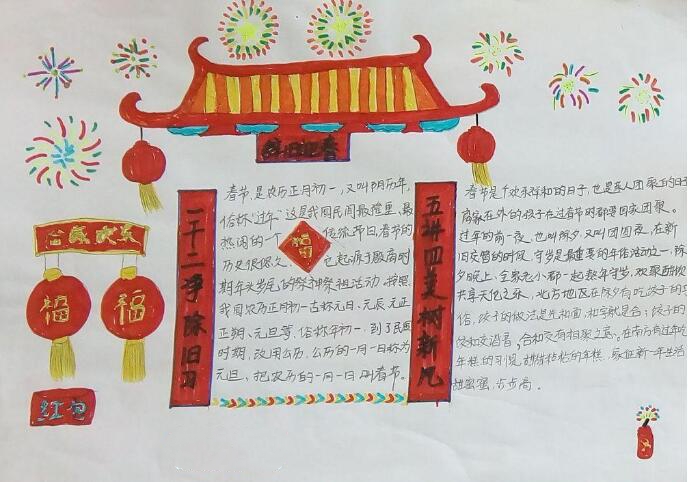 辞旧迎春
合家欢乐
福
福
红包
一干二净除旧习
五讲四美树新风
福
春节,是农历正月初一,又叫阴历年,
俗称"过年"这是我国民间最隆重、最
热闹的一个 传统节日,春节的
历史很悠久 它起源于殷商时
期年头岁尾的祭神祭祖活动,按照
我国农历正月初一古称元日、元辰元正
正朔、元旦等,俗称年初一,到了民国
时期,改用公历,公历的一月一日称为
元旦,把农历的一月一日叫春节。
春节是个欢乐祥和的日子,也是亲人团聚的日子
离家在外的孩子在过春节时都要回家团聚。
过年的前一夜,也叫除夕,又叫团圆夜,在新
旧交替的时候,守岁是最重要的年俗活动之一,除
夕晚上,全家老小都一起熬年守岁,欢聚酣饮
共享天伦之乐,北方地区在除夕有吃饺子的
俗,饺子的做法是先和面,和字就是合;饺子的
饺和交谐音,合和交有相聚之意。在南方有过年吃
年糕的习惯,甜甜粘粘的年糕,象征新一年生活
甜蜜蜜,步步高。